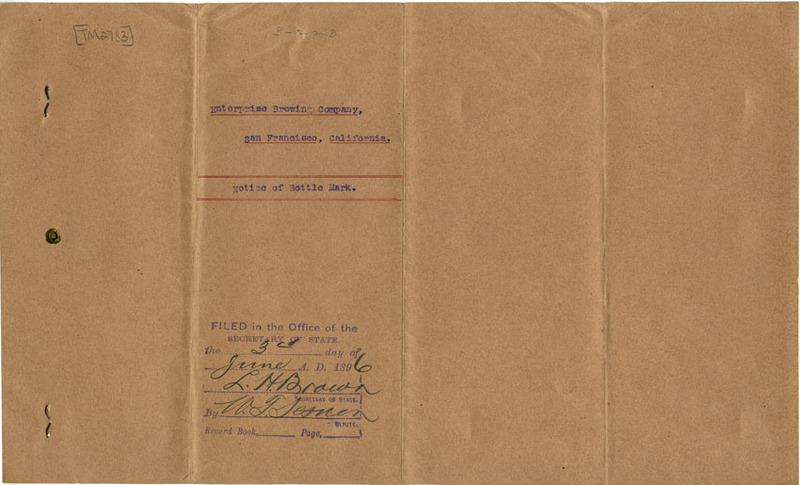 [TM2783]
Enterprise Brewing Company,
San Francisco, California.
Notice of Bottle Mark.
FILED in the Office of the
SECRETARY OF STATE.
the 3d day of
June A. D. 1896
L. H. Brown
SECRETARY OF STATE.
By W. T.
DEPUTY.
Record Book, Page,